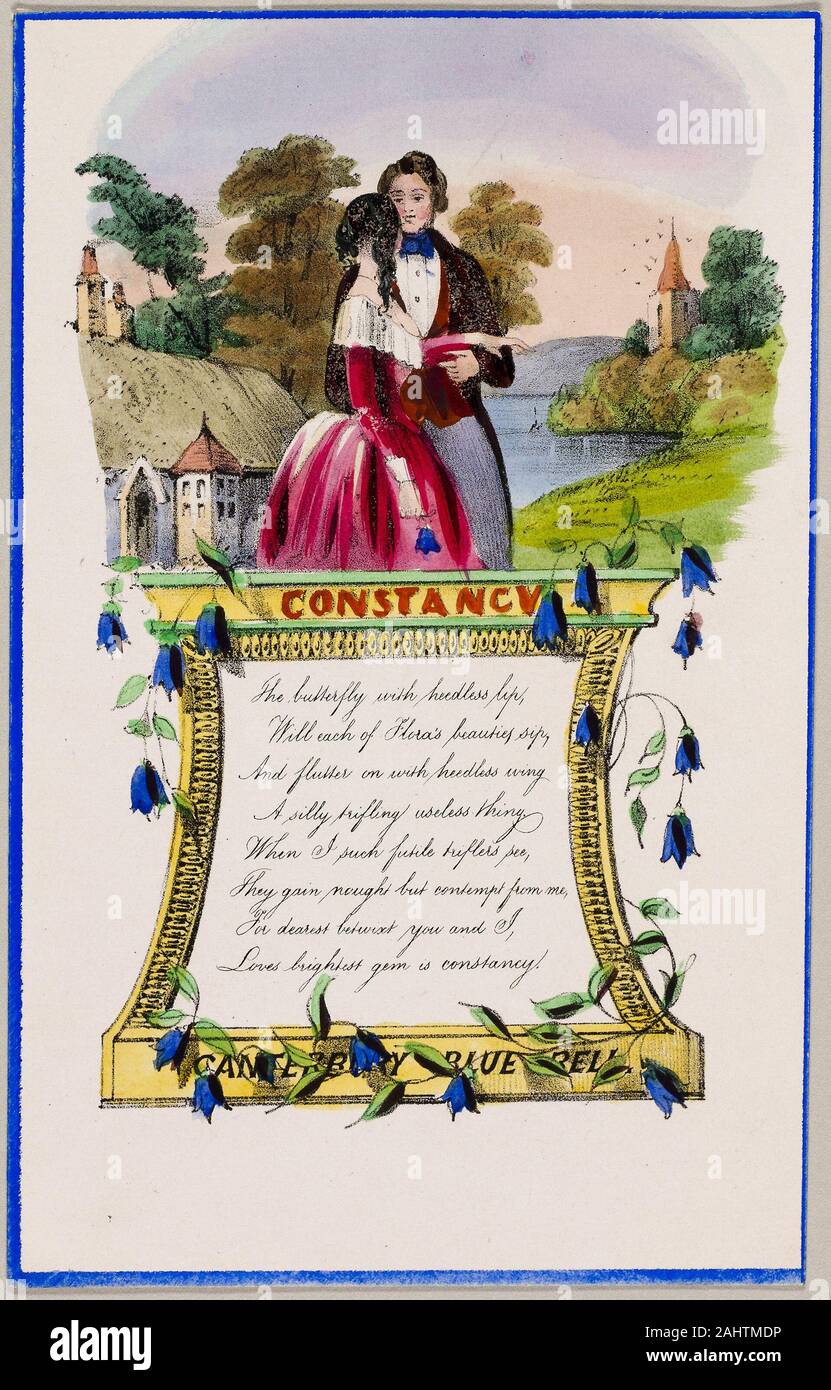 CONSTANCY
The butterfly with heedless lip,
Will each of Flora's beauties sip,
And flutter on with heedless wing
A silly trifling useless thing
When I such futile triflers see,
They gain nought but contempt from me,
For dearest betwixt you and I,
Loves brightest gem is constancy!
CANTERBURY BLUE BELL.
alamy
alamy
Image ID: 2AHTMDP
www.alamy.com